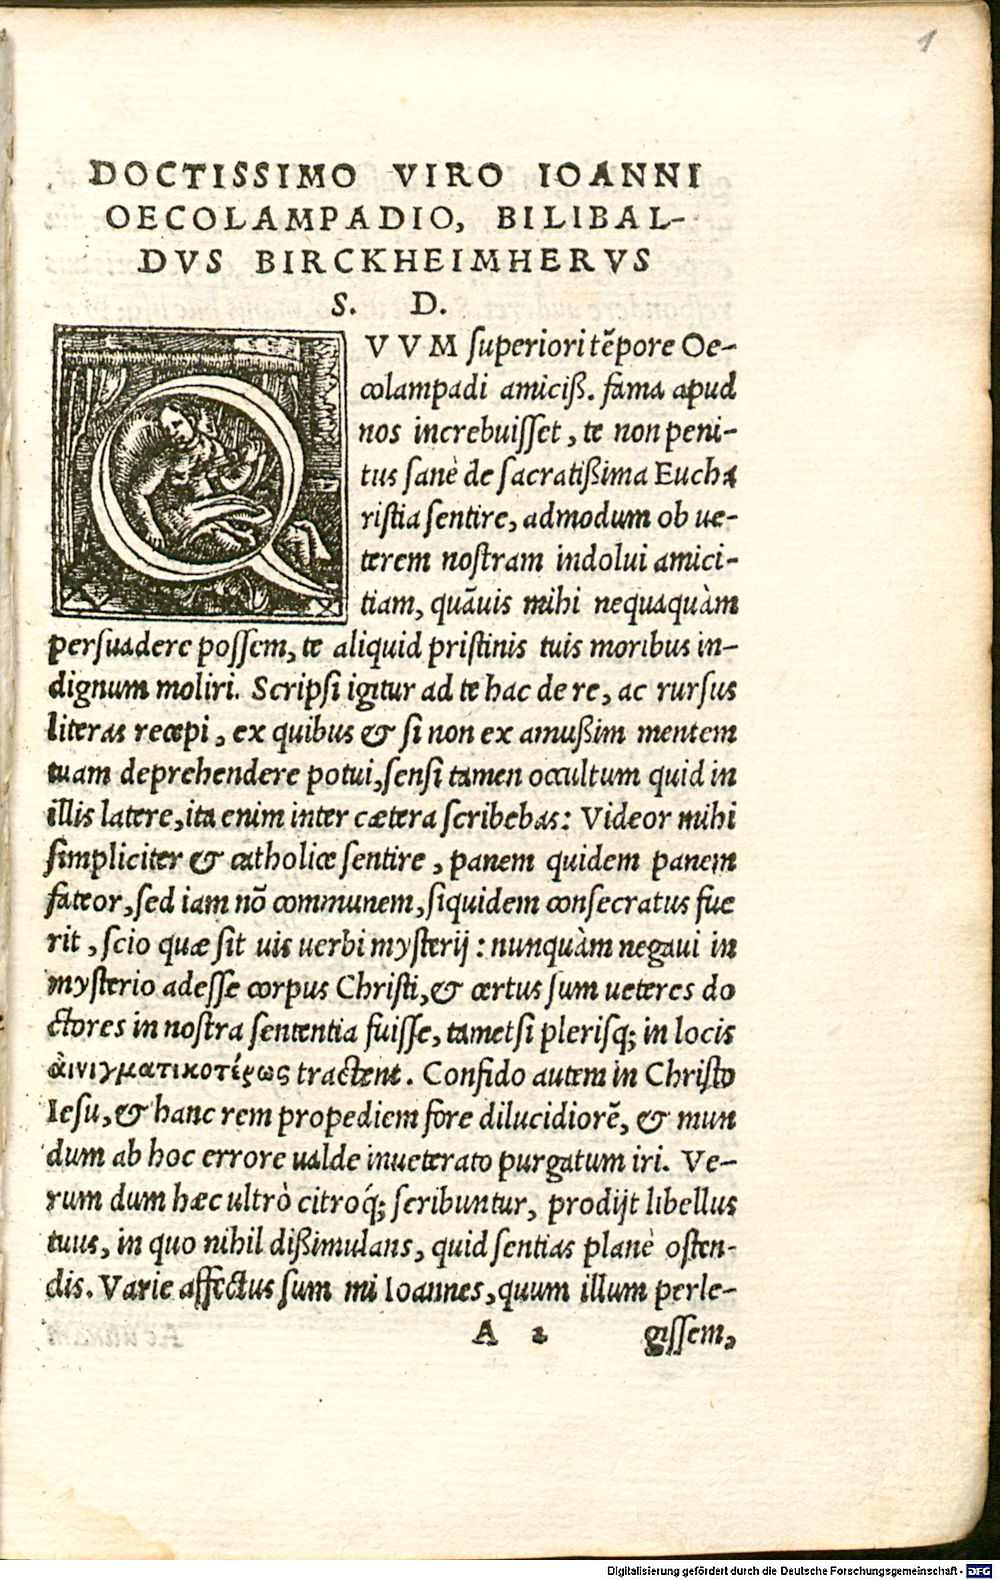 1
DOCTISSIMO VIRO IOANNI
OECOLAMPADIO, BILIBAL-
DVS BIRCKHEIMHERVS
S. D.
QVVM superiori tẽpore Oe-
colampadi amiciß. fama apud
nos increbuisset, te non peni-
tus sanè de sacratißima Eucha
ristia sentire, admodum ob ue-
terem nostram indolui amici-
tiam, quãuis mihi nequaquàm
persuadere possem, te aliquid pristinis tuis moribus in-
dignum moliri. Scripsi igitur ad te hac de re, ac rursus
literas recepi, ex quibus & si non ex amußim mentem
tuam deprehendere potui, sensi tamen occultum quid in
illis latere, ita enim inter cætera scribebas: Videor mihi
simpliciter & catholice sentire, panem quidem panem
fateor, sed iam nõ communem, siquidem consecratus fue
rit, scio quæ sit uis uerbi mysterij: nunquàm negaui in
mysterio adesse corpus Christi, & certus sum ueteres do
ctores in nostra sententia fuisse, tametsi plerisq; in locis
ἀινιγματικοτέρως tractent. Confido autem in Christo
Iesu, & hanc rem propediem fore dilucidiorẽ, & mun
dum ab hoc errore ualde inueterato purgatum iri. Ve-
rum dum hæc ultrò citroq́; scribuntur, prodijt libellus
tuus, in quo nihil dißimulans, quid sentias planè osten-
dis. Varie affectus sum mi Ioannes, quum illum perle-
A 2 gissem,
Digitalisierung gefördert durch die Deutsche Forschungsgemeinschaft - DFG